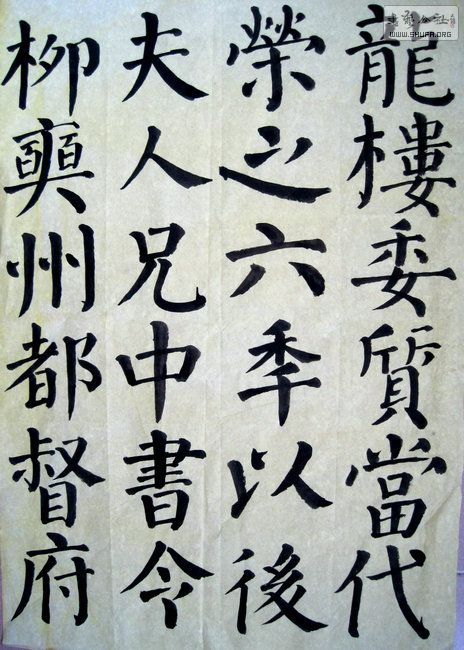 龍樓委質當代
榮之六季以後
夫人兄中書令
柳奭州都督府
WWW.SHUFA.ORG